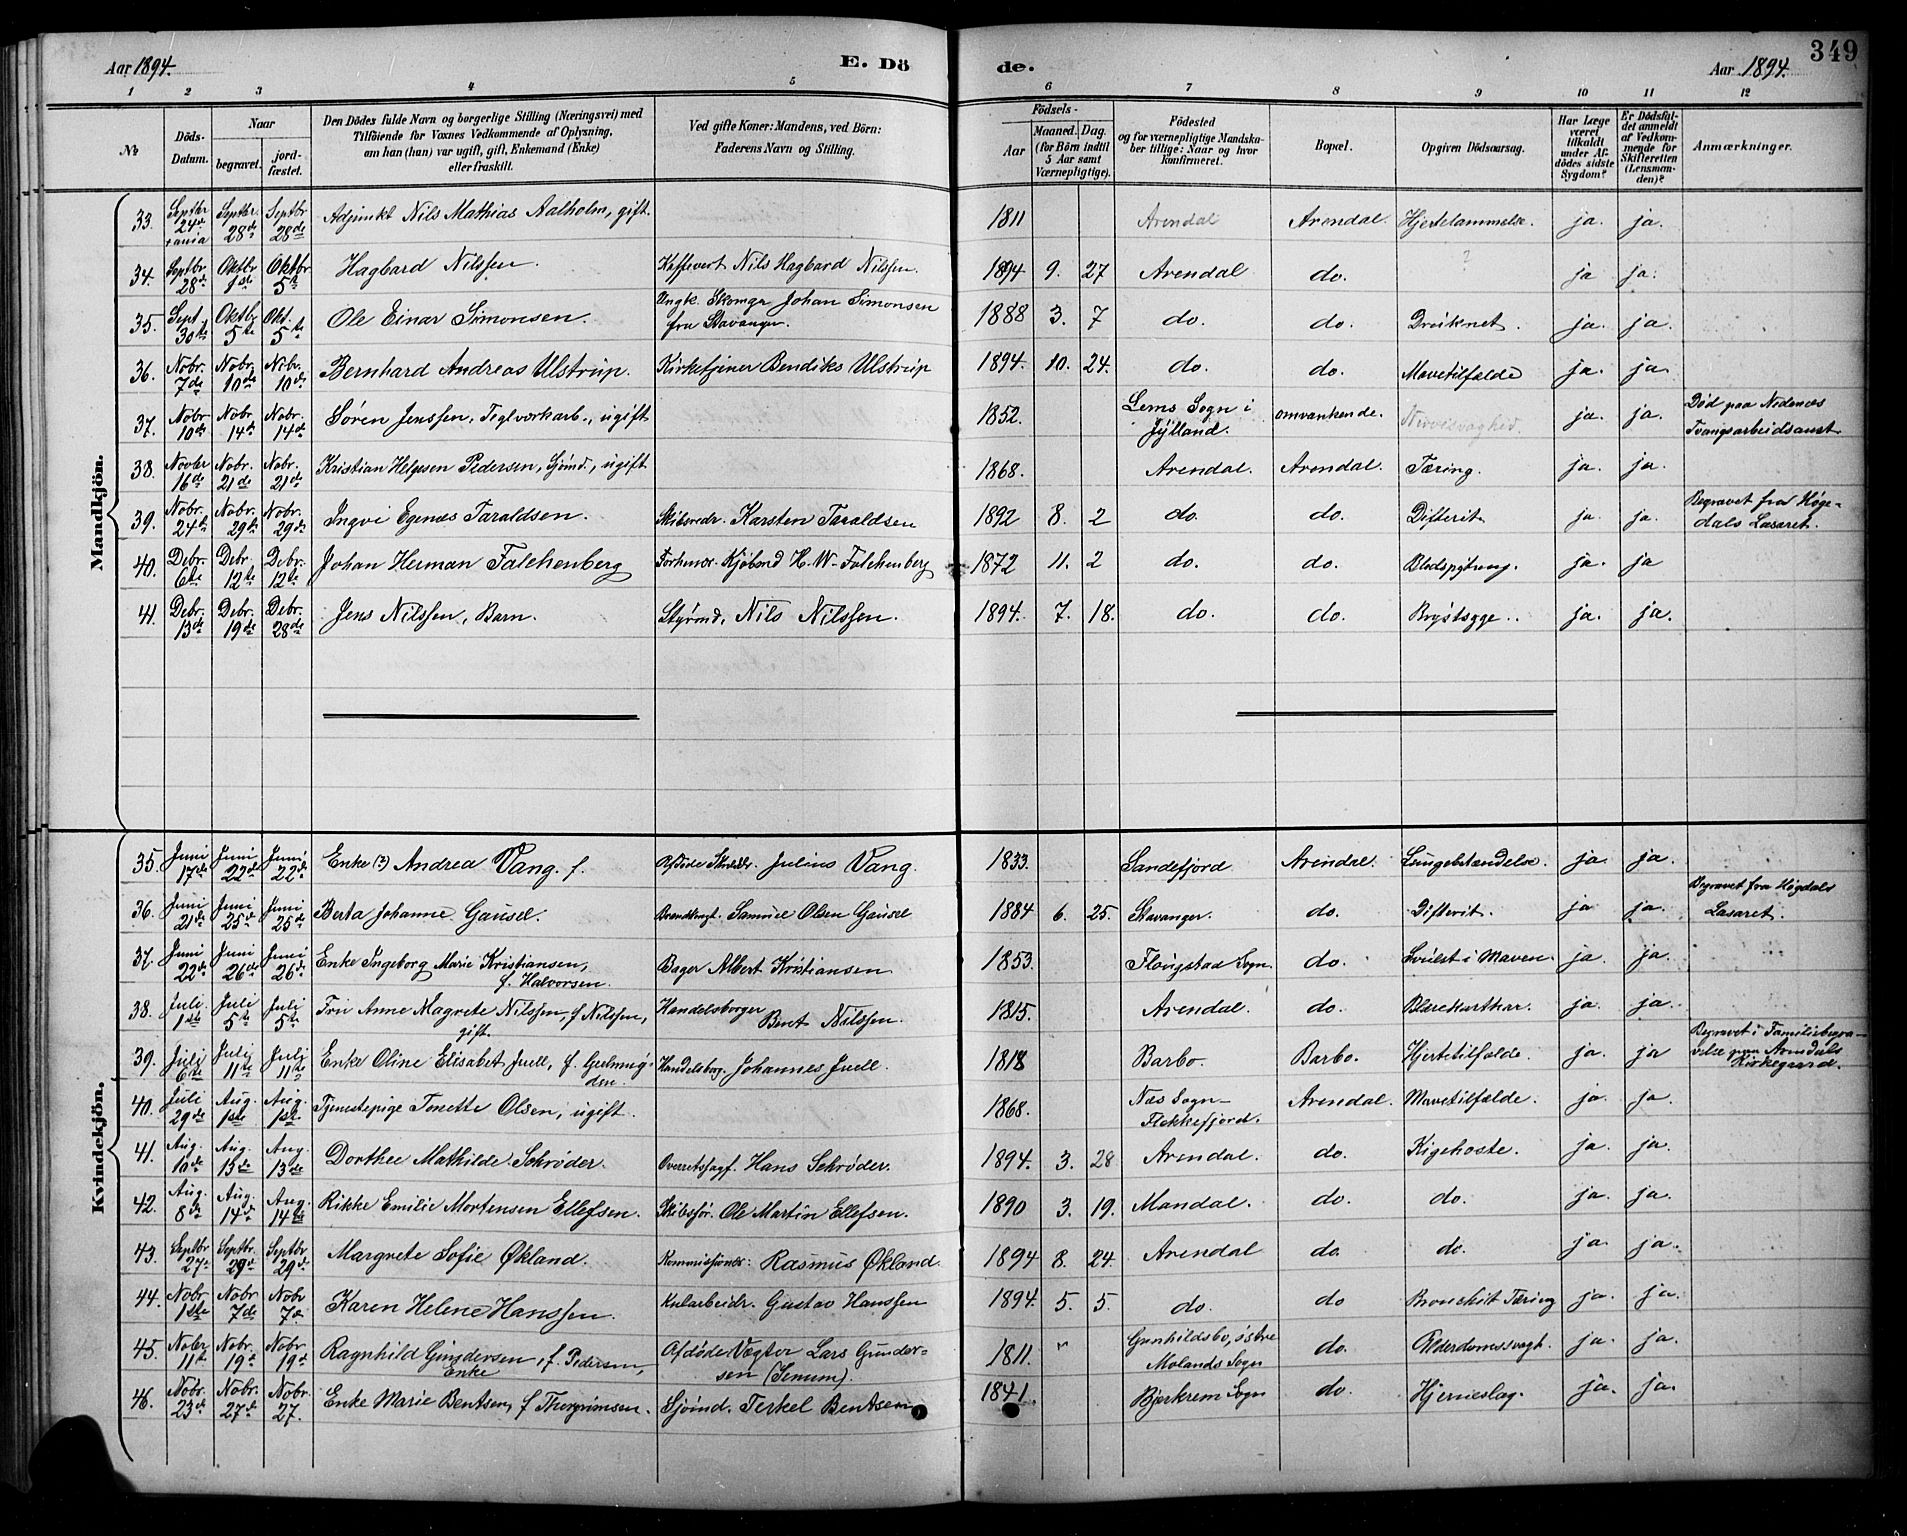 349
Aar 1894. E. Dö de. Aar 1894.
1 2 3 4 5 6 7 8 9 10 11 12
№
Döds-Datum.
Naar
begravet.
jord-fæstet.
Den Dödes fulde Navn og borgerlige Stilling (Næringsvei) med
Tilföiende for Voxnes Vedkommende af Oplysning,
om han (hun) var ugift, gift, Enkemand (Enke)
eller fraskilt.
Ved gifte Koner: Mandens, ved Börn:
Faderens Navn og Stilling.
Födsels-
Aar
Maaned. Dag.
(for Börn indtil
5 Aar samt
Værnepligtige).
Födested
og for værnepligtige Mandska-
ber tillige: Naar og hvor
konfirmeret.
Bopæl.
Opgiven Dödsaarsag.
Har Læge
været
tilkaldt
under Af-
dödes sidste
Sygdom?
Er Dödsfal-
det anmeldt
af Vedkom-
mende for
Skifteretten
(Lensman-
den)?
Anmærkninger.
Mandkjön.
33. Septbr 24de Septbr. 28de Septbr 28de Adjunkt Nils Mathias Aalholm, gift. 1811 Arendal Arendal. Hjertelammelse. ja. ja.
34. Septbr. 28de Oktbr 1ste Oktbr 5te Hagbard Nilssen. Kaffevert Nils Hagbard Nilssen. 1894 9. 27 Arendal do. ? ja ja.
35. Sept. 30te Oktbr 5te Okt. 5te Ole Einar Simonsen. Ungk. Skomgr Johan Simonsen fra Stavanger. 1888 3. 7 do. do. Druknet. ja. ja.
36. Nobr. 7de Nobr. 10de Nobr. 10de Bernhard Andreas Ulstrup. Kirketjener Bendiks Ulstrup 1894. 10. 24. do. do. Mavetilfælde ja. ja.
37. Nobr 10de Nobr. 14de Nobr. 14de Søren Jenssen, Teglverkarb., ugift 1852. Lems Sogn i Jylland. omvankende. ja. ja. Død paa Nedenes Tvangsarbeidsanst.
38. Novbr 16de Nobr. 21de Nobr. 21de Kristian Helgesen Pedersen, Sjömd., ugift 1868. Arendal. Arendal. Tæring. ja. ja.
39. Nobr. 24de Nobr. 29de Nobr. 29de Ingvi Egenæs Taraldsen. Skibsredr. Karsten Taraldsen 1892 8. 2 do. do. Difterit. ja ja. Begravet fra Høgedals Lasaret.
40. Debr. 6te Debr 12te Debr. 12te Johan Herman Falchenberg Forhenv. Kjøbmd H. W. Falchenberg 1872 11. 2 do. do. Blodspytning. ja. ja
41. Debr. 13de Debr. 19de Debr. 28de Jens Nilssen, Barn. Styrmd. Nils Nilssen. 1894. 7. 18. do. do. Brystsyge. ja. ja.
Kvindekjön.
35. Juni 17de Juni 22de Juni 22de Enke (?) Andrea Vang. f. Afdøde Julius Vang. 1833. Sandefjord Arendal. Lungebetændelse. ja. ja.
36. Juni 21de Juni 25de Juni 25de Berta Johanne Gausel. Samuel Olsen Gausel 1884 6. 25. Stavanger. do. Difterit. ja ja. Begravet fra Høgdals Lasaret.
37. Juni 22de Juni 26de Juni 26de Enke Ingeborg Marie Kristiansen, f. Halvorsen. Bager Albert Kristiansen 1853. Sogn. do. Svulst i Maven. ja. ja.
38. Juli. 1ste Juli 5te Juli 5te Fru Anne Magrete Nilssen, f Nilssen, gift. Handelsborger Bent Nilssen. 1815. Arendal. do. Blærekatharr. ja. ja
39. Juli 6te Juli 11te Juli 11te Enke Oline Elisabet Juell, f. Gulmug-den. Handelsborg. Johannes Juell. 1818 Barbo. Barbo. Hjertetilfælde. ja. ja Begravet i Familiebegravelse paa Arendals Kirkegaard.
40. Juli 29de Aug. 1ste Aug. 1ste Tjenestepige Tonette Olsen, ugift. 1868. Næs Sogn - Flekkefjord. Arendal. Mavetilfælde. ja. ja.
41. Aug. 10de Aug. 13de Aug. 13de Dorthee Mathilde Schrøder. Overretssagf. Hans Schrøder. 1894. 3. 28 Arendal. do. Kigehoste. ja. ja.
42. Aug. 8de Aug. 14de Aug. 14de Rikke Emilie Mortensen Ellefsen. Skibsfør. Ole Martin Ellefsen. 1890 3. 19. Mandal. do. do. ja. ja.
43. Septbr 27de Septbr. 29de Septbr 29de Margrete Sofie Økland. Kommissionær. Rasmus Økland. 1894 8. 24. Arendal do. do. ja. ja.
44. Nobr. 1ste Nobr. 7de Nobr 7de Karen Helene Hanssen. Kularbeidr. Gustav Hanssen 1894. 5. 5. do. do Bronchit Tæring ja. ja.
45. Nobr 11te Nobr. 19de Nobr. 19de Ragnhild Gundersen, f. Pedersen, Enke Afdøde Vægter Lars Gundersen (Senum). 1811. " Gunhildsbo, østre Molands Sogn do. Alderdomssvagh. ja. ja.
46. Nobr. 23de Nobr. 27de Nobr. 27. Enke Marie Bentsen, f Thorgrimsen. Sjömd. Terkel Bentsen 1841. Bjerkrem Sogn do. Hjerneslag. ja. ja.